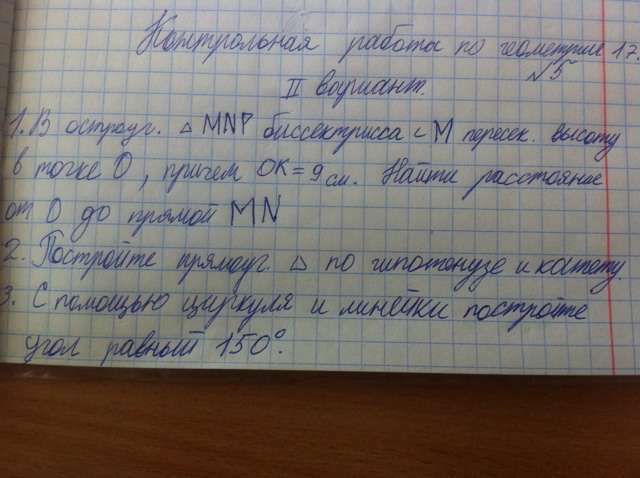 Контрольная работа по геометрии 17.
№5
II вариант.
1. В остроуг. △ MNP биссектрисса ∠ M пересек. высоту
в точке O, причем OK = 9 см. Найти расстояние
от O до прямой MN
2. Постройте прямоуг. △ по гипотенузе и катету.
3. С помощью циркуля и линейки постройте
угол равный 150°.